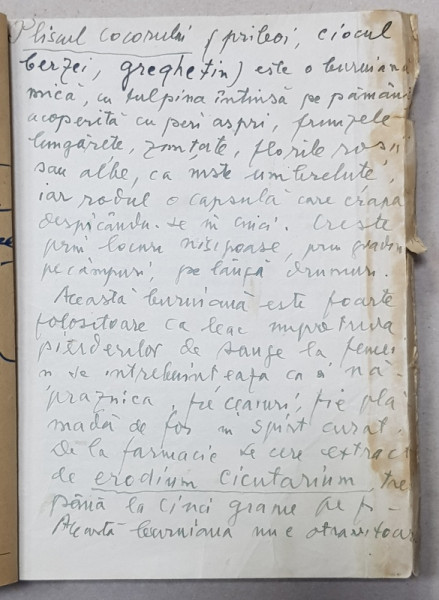 Pliscul cocorului (priboi, ciocul
berzei, greghetin) este o buruiană
mică, cu tulpina întinsă pe pământ
acoperită cu peri aspri, frunzele
lungărețe, zimțate, florile roșii
sau albe, ca niște umbreluțe,
iar rodul o capsulă care crapă
despicându-se în cinci. Crește
prin locuri nisipoase, prin grădini
pe câmpuri, pe lângă drumuri.
Această buruiană este foarte
folositoare ca leac împotriva
pierderilor de sânge la femei
și se întrebuințează ca și nă-
praznica, fie ceaiuri, fie plă
madă de foi în spirt curat.
De la farmacie se cere extract
de erodium cicutarium, trei
până la cinci grame pe
Această buruiană nu e otrăvitoare